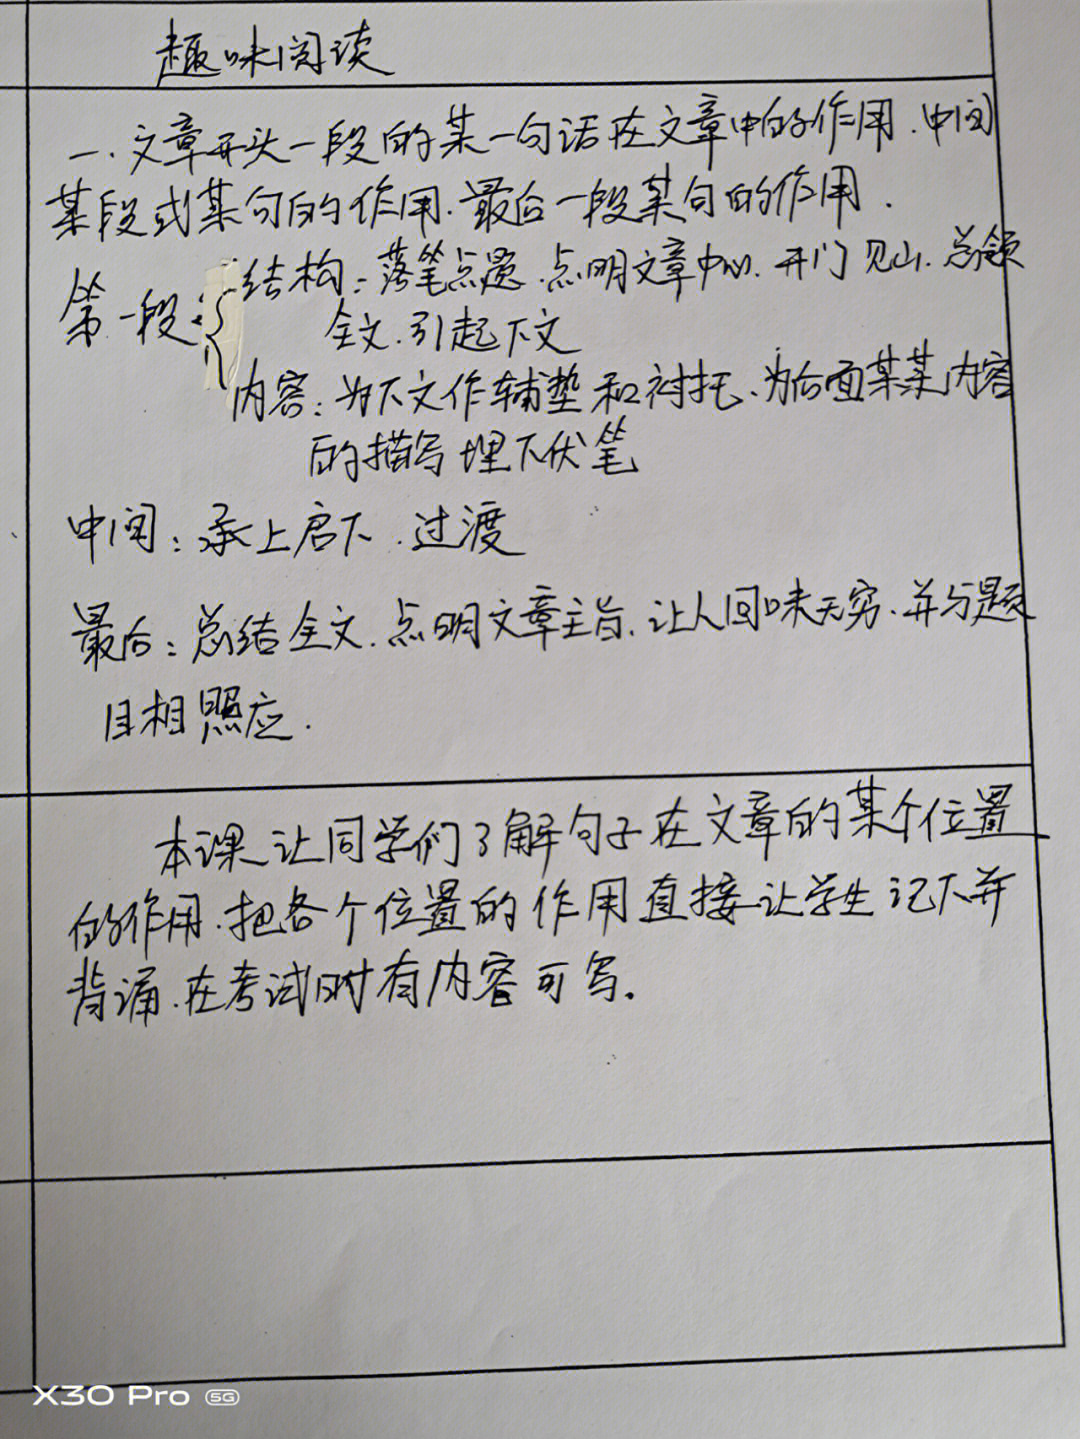 趣味阅读
一.文章开头一段的某一句话在文章中的作用.中间
某段或某句的作用.最后一段某句的作用.
第一段:{结构:落笔点题.点明文章中心.开门见山.总领
全文.引起下文
内容:为下文作辅垫和衬托、为后面某某内容
的描写埋下伏笔
中间:承上启下.过渡
最后:总结全文.点明文章主旨.让人回味无穷.并与题
目相照应.
本课让同学们了解句子在文章的某个位置
的作用.把各个位置的作用直接让学生记下并
背诵.在考试时有内容可写.
X30 Pro 5G